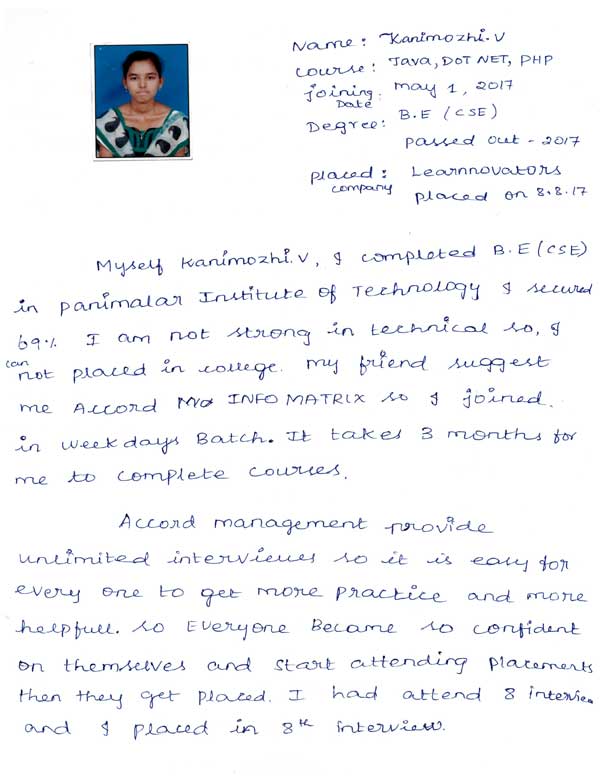 Name: Kanimozhi.V
Course: Java, DOT NET, PHP
joining Date: May 1, 2017
Degree: B.E (CSE)
passed out - 2017
placed company: Learnnovators
placed on 8.8.17
Myself Kanimozhi.V, I completed B.E (CSE)
in panimalar Institute of Technology I secured
69% I am not strong in technical so, I
can not placed in college. my friend suggest
me Accord INFO MATRIX so I joined.
in weekdays Batch. It takes 3 months for
me to complete courses.
Accord management provide
unlimited interviews so it is easy for
every one to get more practice and more
helpfull. so Everyone Became so confident
on themselves and start attending placements
then they get placed. I had attend 8 intervie
and I placed in 8th interview.